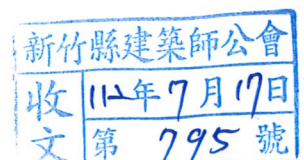 新竹縣建築師公會
收文
112年7月17日
第795號